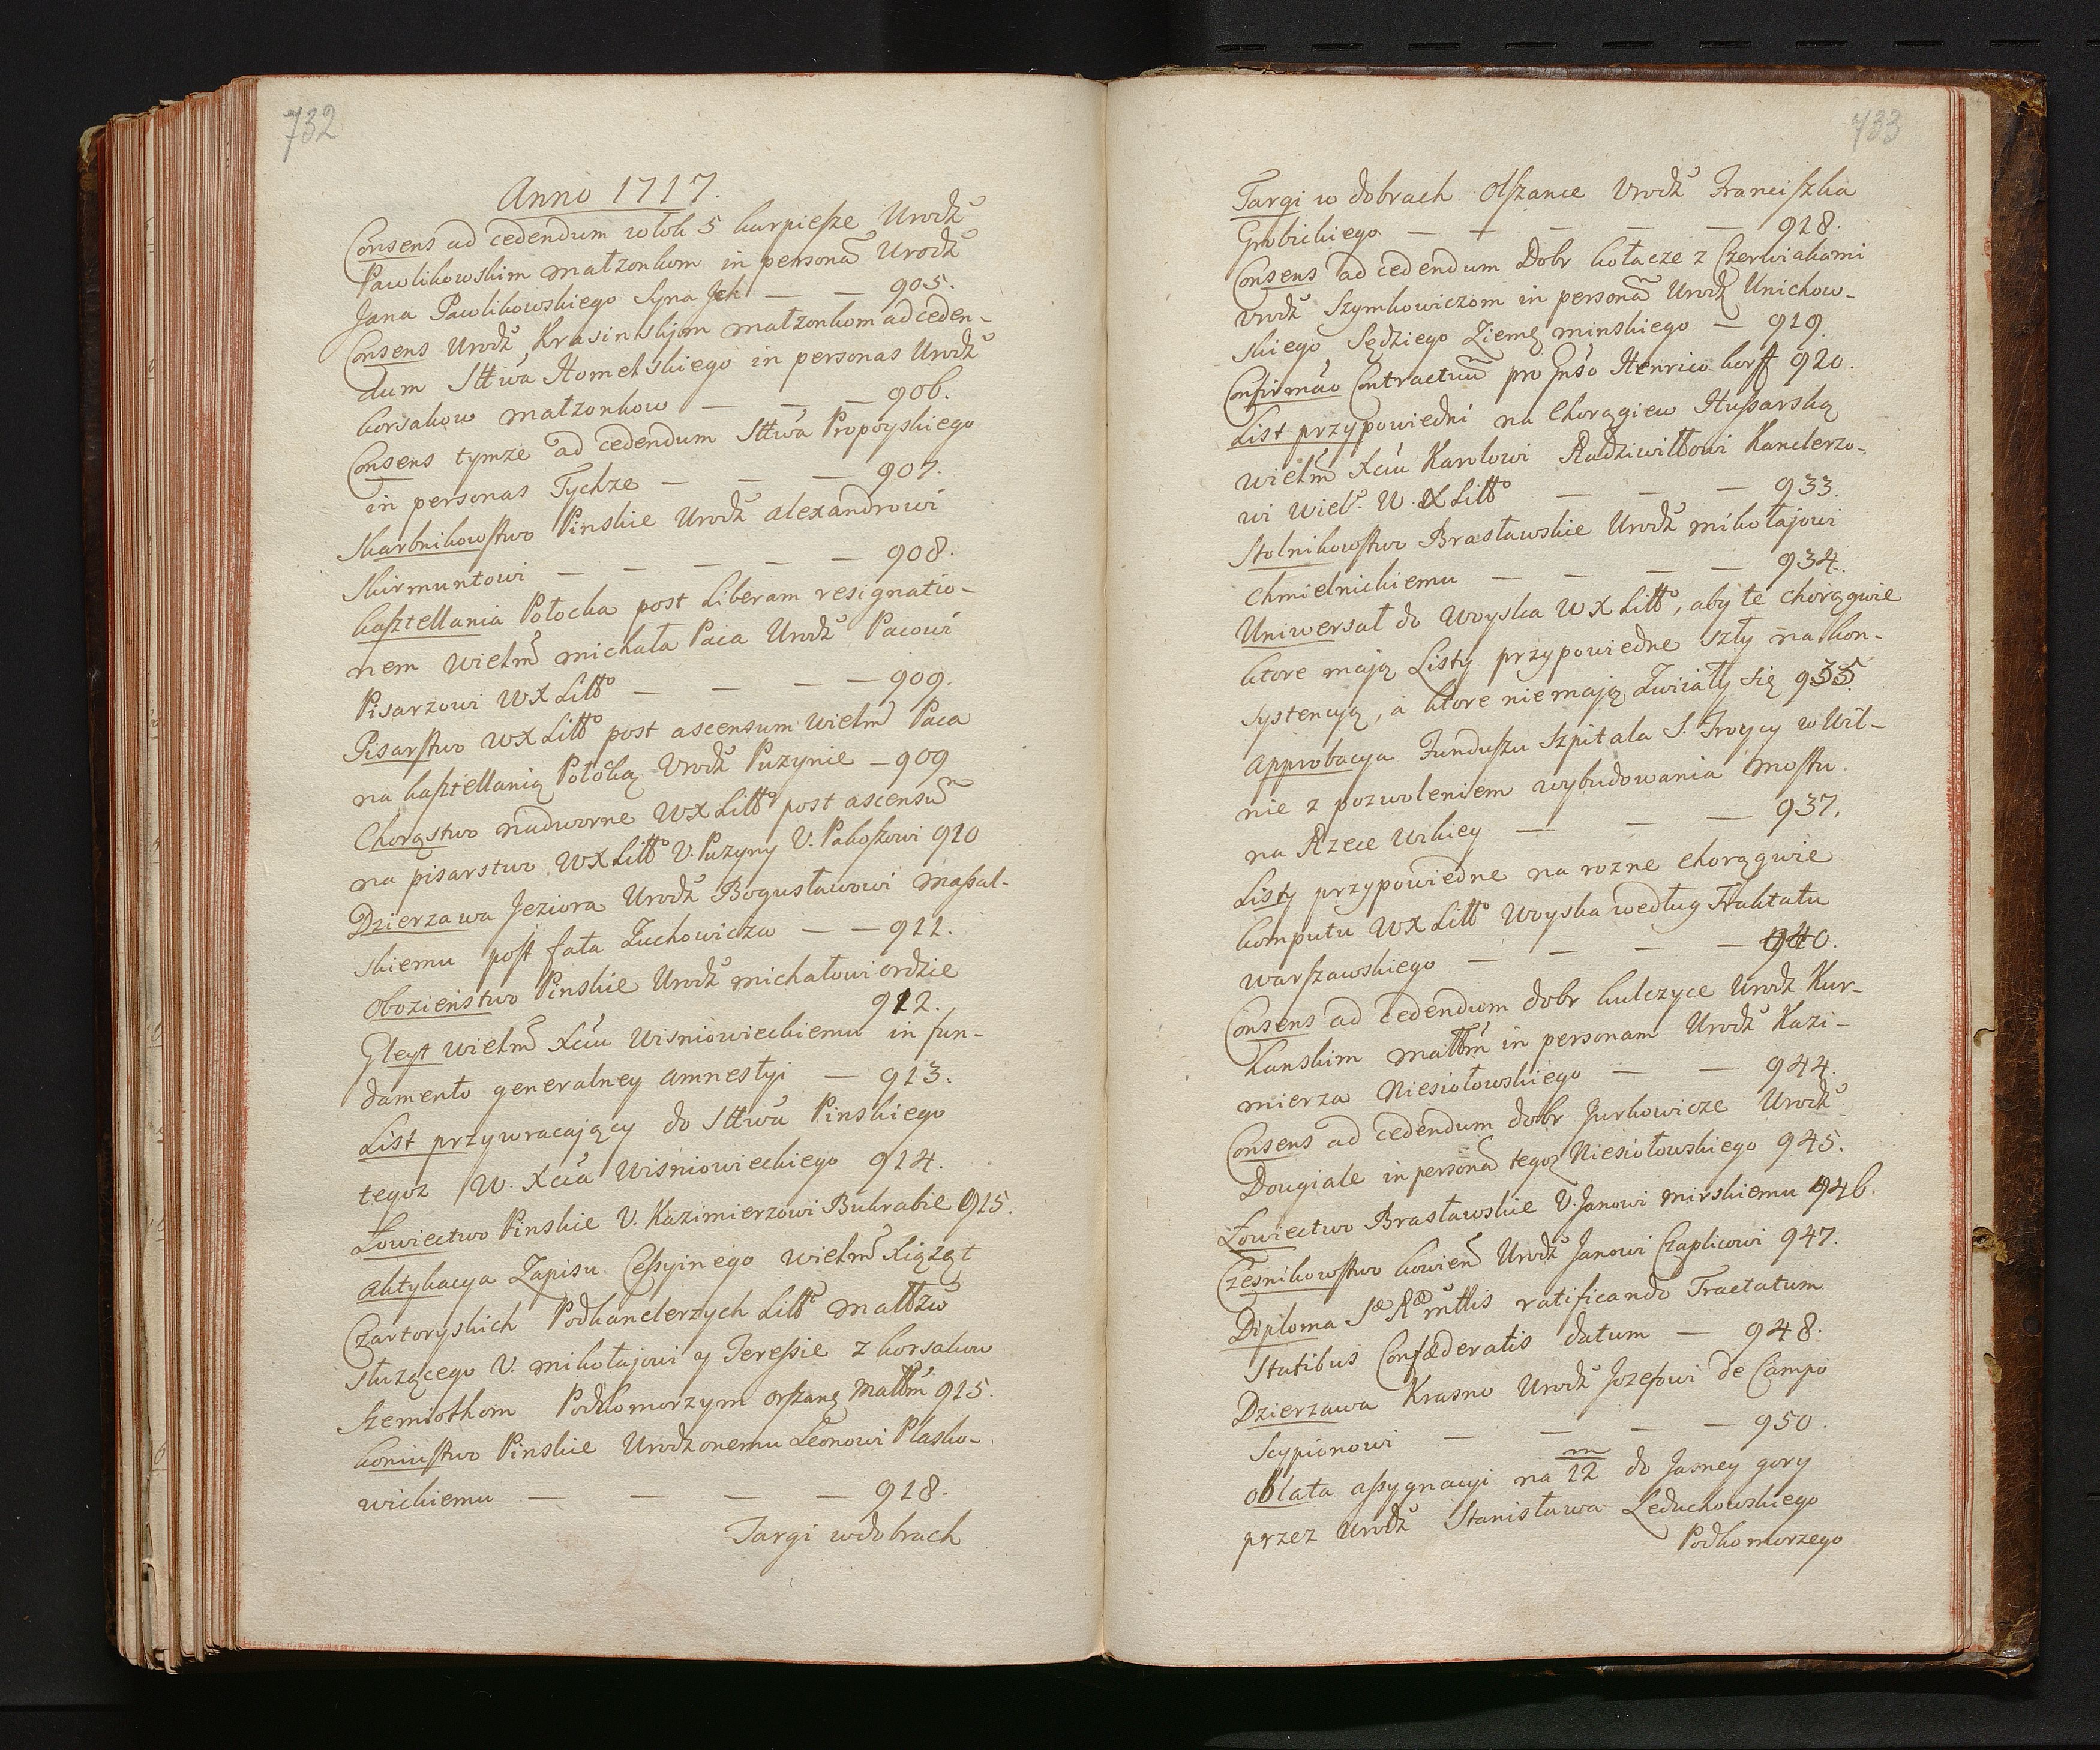 732
Anno 1717.
Consens ad cedendum wlok 5 karpiesze Urodz
Pawlikowskim małzonkom in personã Urodz
Jana Pawlikowskiego Syna Jch — — 905.
Consens Urodz Krasinskjm małzonkom ad ceden-
dum Sttwa Homelskiego in personas Urodz
korsakow małzonkow — — — 906.
Consens tymze ad cedendum Sttwa Propoyskiego
in personas Tychze — — — 907.
Skarbnikowstwo Pinskie Urodz alexandrowi
Skirmuntowi — — — — — 908.
kasztellania Połocka post Liberam resignatio-
nem Wielm michała Paca Urodz Pacowi
Pisarzowi WX Litto — — — — 909.
Pisarstwo WX Litto post ascensum Wielm Paca
na kasztellanią Połocką Urodz Puzynie — 909
Chorąstwo nadworne WX Litto post ascensũ
na pisarstwo WX Litto U. Puzyny U. Pakoszowi 910
Dzierzawa Jeziora Urodz Bogusławowi massal-
skiemu post fata Zuchowicza — — 911.
Obozienstwo Pinskie Urodz michałowi ordzie
912.
Gleyt Wielm Xciu Wisniowieckiemu in fun-
damento generalney amnestyi — 913.
List przywracaiący do Sttwa Pinskiego
tegoz W. Xcia Wisniowieckiego 914.
Łowiectwo Pinskie U. Kazimierzowi Bukrabie 915.
aktykacya Zapisu Cessyinego wielm Xiąząt
Czartoryskich Podkanclerzych Litto małłzw
słuzącego U. mikołajowi y Teressie z korsakow
Szemiothom Podkomorzym orszanš małłm 915.
koniustwo Pinskie Urodzonemu Leonowi Plasko-
wickiemu — — — — 918.
Targi w dobrach
733
Targi w dobrach Olszance Urodz Franciszka
Grobickiego — + — — — 918.
Consens ad cedendum Dobr kołacze z Czerwiakami
Urodz Szymkowiczom in personã Urodz Unichow-
skiego Sędziego Ziemš minskiego — 919.
Confirmao Contractuũ pro Gnso Henrico korff 920.
List przypowiedni na Chorągiew Hussarską
Wielm Xciu Karolowi Radziwiłłowi Kanclerzo-
wi Wielo W. X Litto — — — 933.
Stolnikowstwo Brasławskie Urodz mikołajowi
chmielnickiemu — — — — 934.
Uniwersał do Woyska WX Litto, aby te chorągwie
ktore mają Listy przypowiedne szły na kon-
systencyą, a ktore niemają Zwiiały się 935.
approbacya Funduszu Szpitala S. Troycy w Wil-
nie z pozwoleniem wybudowania mostu
na Rzece Wiliey — — — 937.
Listy przypowiedne na rozne chorągwie
komputu WX Litto Woyska według Traktatu
warszawskiego — — — — 940.
Consens ad cedendum dobr kulczyce Urodz Kur-
hanskim małłm in personam Urodz Kazi-
mierza Niesiołowskiego — — 944.
Consens ad cedendum dobr Jurkowicze Urodz
Dougiale in personã tegoz Niesiołowskiego 945.
Łowiectwo Brasławskie U. Janowi mirskiemu 946.
Czesnikowstwo kowien Urodz Janowi Czaplicowi 947.
Diploma Sæ Ræ mttis ratificando Tractatum
Statibus Confæderatis datum — 948.
Dzierzawa Krasno Urodz Jozefowi de Campo
Scypionowi — — — — 950.
oblata assygnacyi na 12 m do Jasney gory
przez Urodz Stanisława Leduchowskiego
Podkomorzego